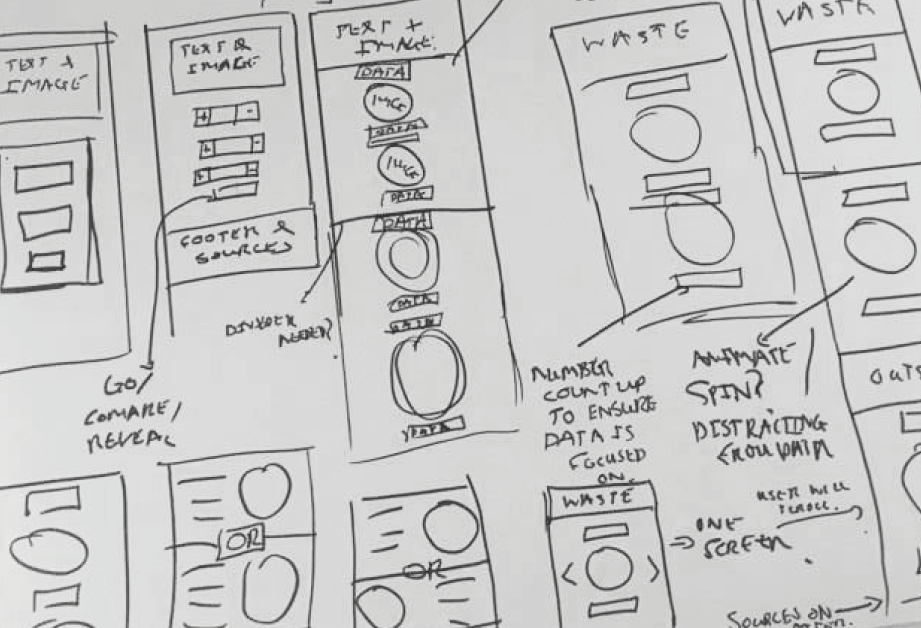 TEXT +
IMAGE
TEXT &
IMAGE
+ -
+ -
+ -
FOOTER &
SOURCES
GO/
COMARE/
REVEAL
TEXT +
IMAGE
DATA
IMG
DATA
IMG
DATA
DATA
DATA
DATA
DATA
DIVIDER
NEEDED?
WASTE
NUMBER
COUNT UP
TO ENSURE
DATA IS
FOCUSED
ON.
WASTE
ANIMATE
SPIN?
DISTRACTING
FROM DATA
OUT
OR
OR
WASTE
< >
ONE
SCREEN
USER WILL
SCROLL.
SOURCES ON